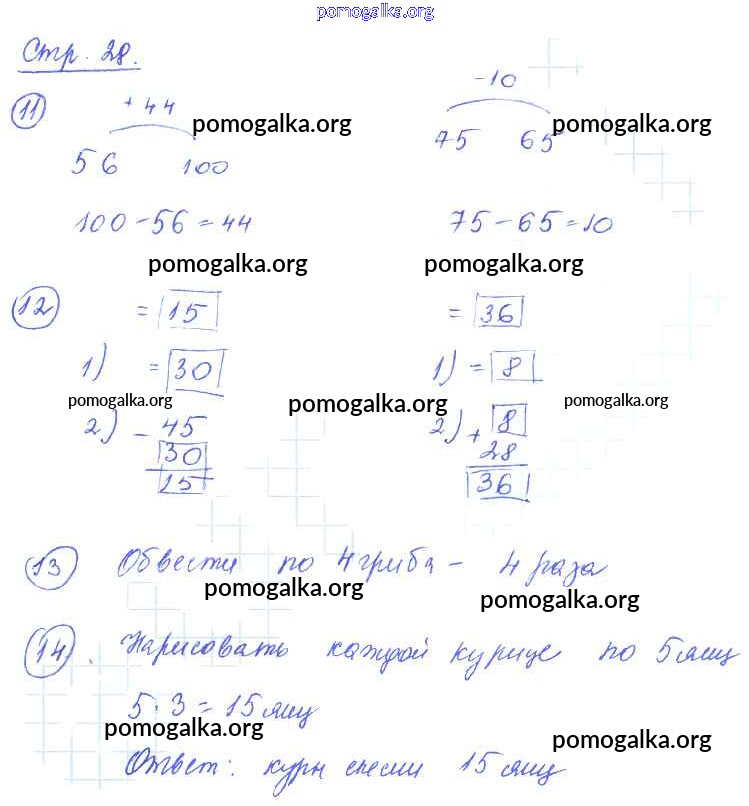 pomogalka.org
Стр. 28.
11 + 44 - 10
pomogalka.org pomogalka.org
56 100 75 65
100 - 56 = 44 75 - 65 = 10
pomogalka.org pomogalka.org
12 = 15 = 36
1) = 30 1) = 8
pomogalka.org pomogalka.org pomogalka.org
2) - 45 2) + 8
30 28
15 36
13 Обвести по 4 гриба - 4 раза
pomogalka.org pomogalka.org
14. Нарисовать каждой курице по 5 яиц
5 · 3 = 15 яиц
pomogalka.org pomogalka.org
Ответ: куры снесли 15 яиц